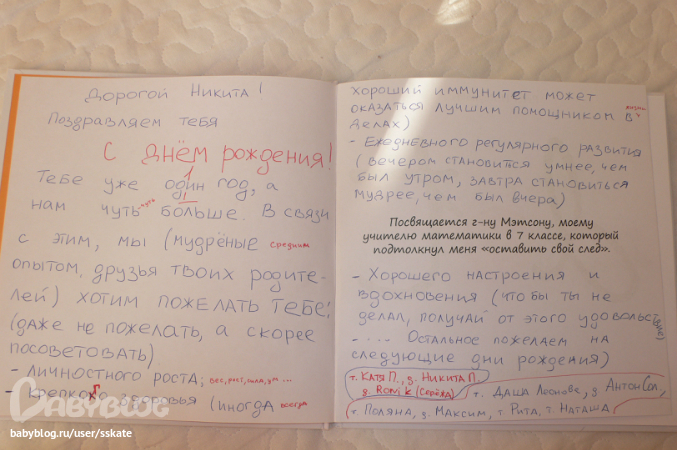 Дорогой Никита!
Поздравляем тебя
С днём рождения!
1
Тебе уже один год, а
нам чуть чуть больше. В связи
с этим, мы (мудрёные средним
опытом, друзья твоих родите-
лей) хотим пожелать тебе:
(даже не пожелать, а скорее
посоветовать)
- личностного роста; вес, рост, сила, ум ...
- крепкого здоровья (иногда всегда
хороший иммунитет может
оказаться лучшим помощником в жизни
делах)
- Ежедневного регулярного развития
(вечером становится умнее, чем
был утром, завтра становиться
мудрее, чем был вчера)
Посвящается г-ну Мэтсону, моему
учителю математики в 7 классе, который
подтолкнул меня «оставить свой след».
- Хорошего настроения и
вдохновения (что бы ты не
делал, получай от этого удовольствие)
- ... Остальное пожелаем на
следующие дни рождения)
т. Катя П., д. Никита П.
д. (Серёжа)
т. Даша Леонова, д. Антон
т. Поляна, д. Максим, т. Рита, т. Наташа
BABYBLOG
babyblog.ru/user/sskate